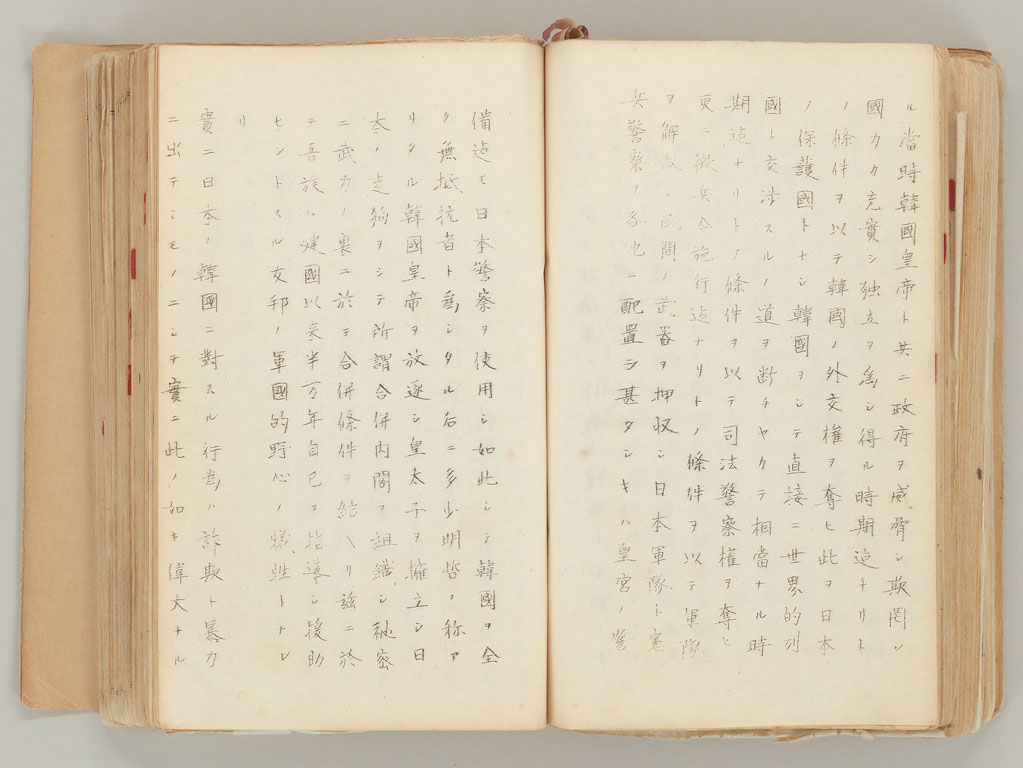 ル當時韓國皇帝ト共ニ政府ヲ威脅シ欺罔シ
國力ノ充實シ独立ヲ為シ得ル時期迠ナリト
ノ條件ヲ以テ韓國ノ外交權ヲ奪ヒ此ヲ日本
ノ保護國トナシ韓國ヲシテ直接ニ世界的列
國ト交渉スルノ道ヲ断チ相當ナル時
期迠ナリトノ條件ヲ以テ司法警察權ヲ奪ヒ
更ニ徴兵令施行迠ナリトノ條件ヲ以テ軍隊
ヲ解散シ民間ノ武器ヲ押収シ日本軍隊ト憲
兵警察ヲ各地ニ配置シ甚タシキハ皇宮ノ警
備迠モ日本警察ヲ使用シ如此シシ韓國ヲ全
ク無抵抗者ト為シタル后ニ多少明哲ノ称ア
リシル韓國皇帝ヲ放逐シ皇太子ヲ擁立シ日
本ノ走狗ヲシテ所謂合併内閣ヲ組織シ秘密
ニ武力ノ裏ニ於テ合併條件ヲ結ヘリ茲ニ於
テ吾族ハ建國以来半万年自己ヲ指導シ援助
セントスル友邦ノ軍國的野心ノ犠牲トナレ
リ
實ニ日本ノ韓國ニ對スル行為ハ詐欺ト暴力
ニ出テシモノニシテ實ニ此ノ如キ偉大ナル